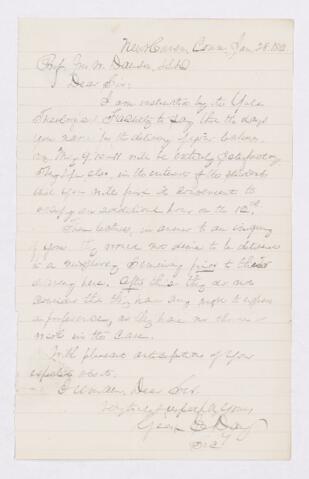 New Haven, Conn, Jan. 28,
Prof. Jno. W. Dawson, LL.D
Dear Sir:
I am instructed by the Yale
Theological Faculty to say that the days
you name for the delivery of your lectures
May 9, 10 & 11 will be entirely satisfactory
They hope also, in the interest of the students
that you will find it convenient to
occupy an additional hour on the 12th.
These lectures, in answer to an inquiry
of yours. They would not desire to be delivered
to a Seminary prior to their
delivery here. After this they do not
consider that they have any right to express
a preference, as they have no
in the case.
With pleasant anticipations of your
expected visit.
I remain, Dear Sir,
Very truly & respectfully yours,
Geo. E. Day